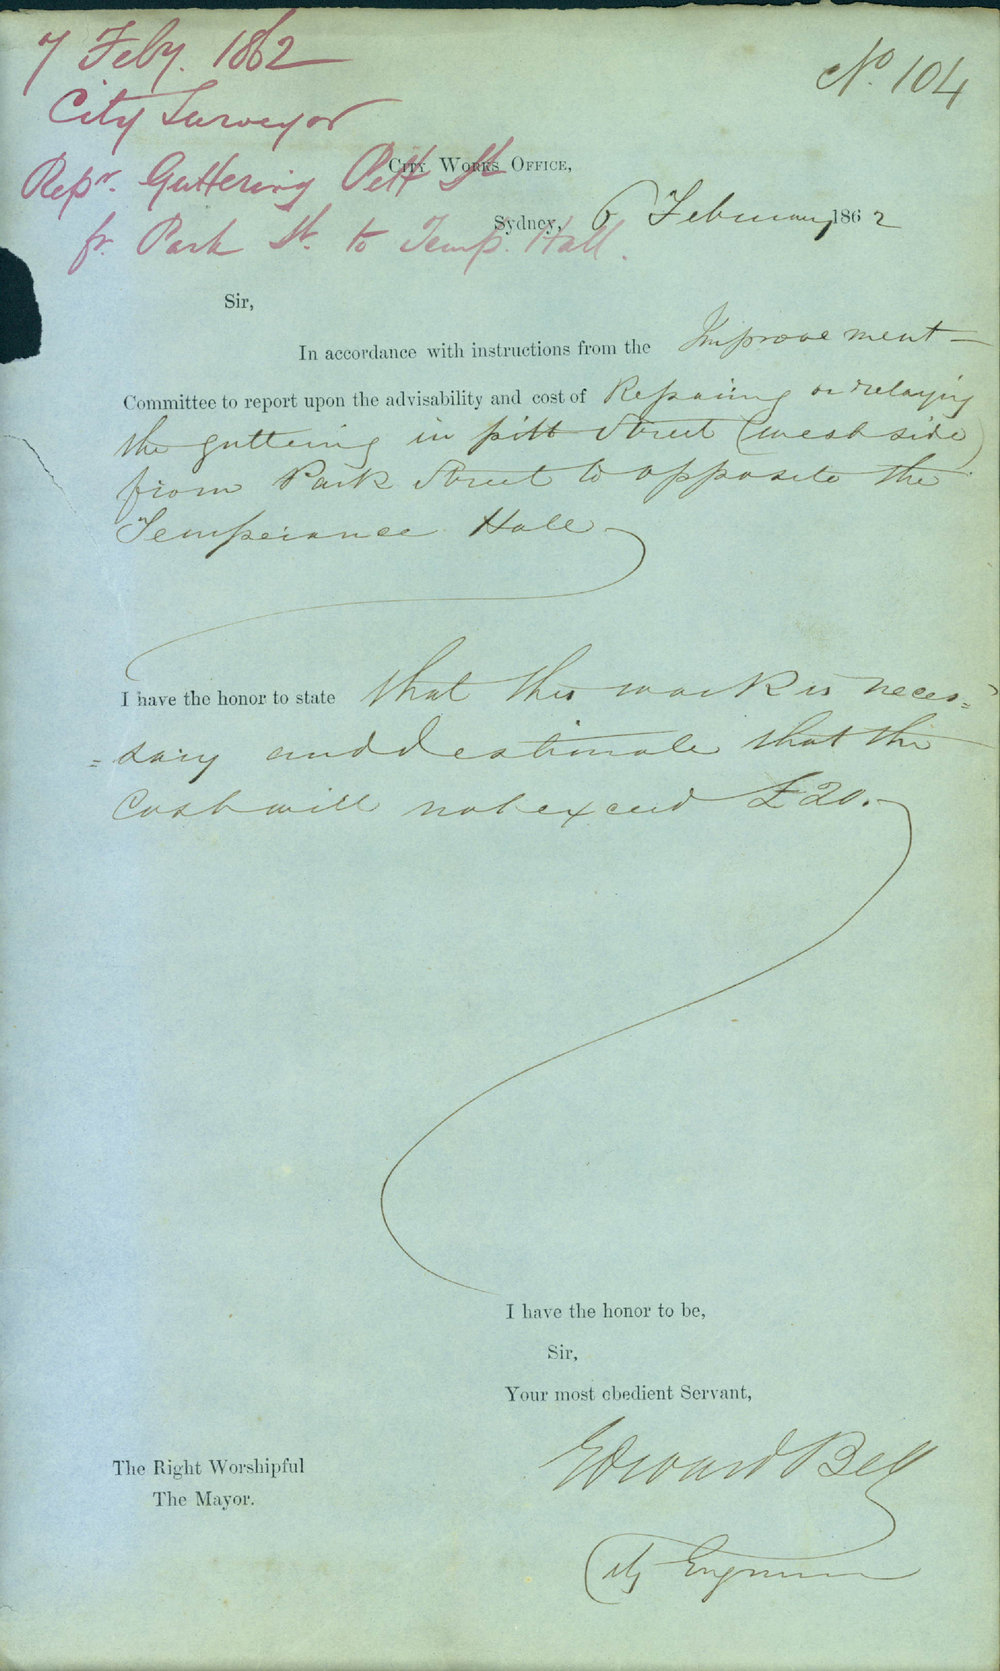 7 Feby. 1862
No. 104
City Surveyor
Repr. Guttering Pitt St
fr. Park St. to Temp. Hall.
City Works Office,
Sydney, 6 February 1862
Sir,
In accordance with instructions from the Improvement
Committee to report upon the advisability and cost of Repairing or relaying
the guttering in pitt Street (west side)
from Park Street to opposite the
Temperance Hall
I have the honor to state that this work is neces=
=sary and I estimate that the
Cost will not exceed £20.
I have the honor to be,
Sir,
Your most obedient Servant,
Edward Bell
City Engineer
The Right Worshipful
The Mayor.